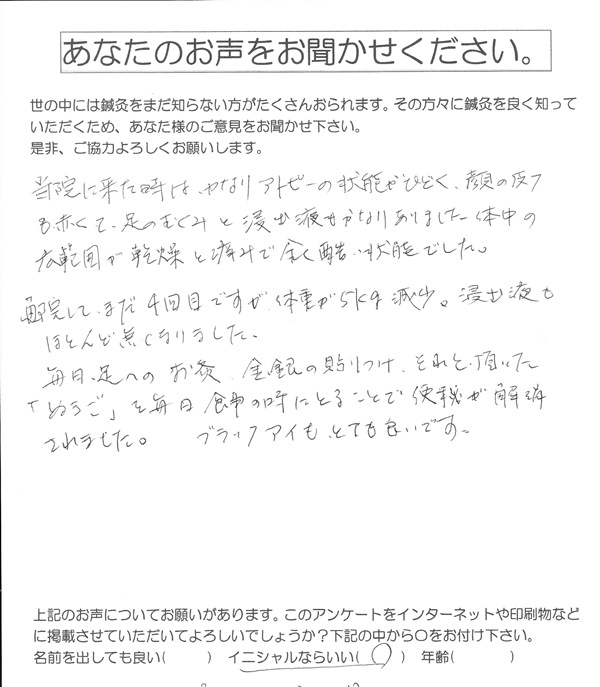 あなたのお声をお聞かせください。
世の中には鍼灸をまだ知らない方がたくさんおられます。その方々に鍼灸を良く知って
いただくため、あなた様のご意見をお聞かせ下さい。
是非、ご協力よろしくお願いします。
当院に来た時は、かなりアトピーの状態がひどく、顔の皮フ
も赤くて、足のむくみと浸出液もかなりありました。体中の
広範囲が乾燥と痛みで全く酷い状態でした。
院して、まだ4回目ですが、体重が5kg減少。浸出液も
ほとんど無くなりました。
毎日、足へのお灸、金銀の貼りつけ、それと、頂いた
」を毎日食事の時にとることで便秘が解消
されました。 ブラックアイも、とても良いです。
上記のお声についてお願いがあります。このアンケートをインターネットや印刷物など
に掲載させていただいてよろしいでしょうか?下記の中から○をお付け下さい。
名前を出しても良い( ) イニシャルならいい(○) 年齢( )